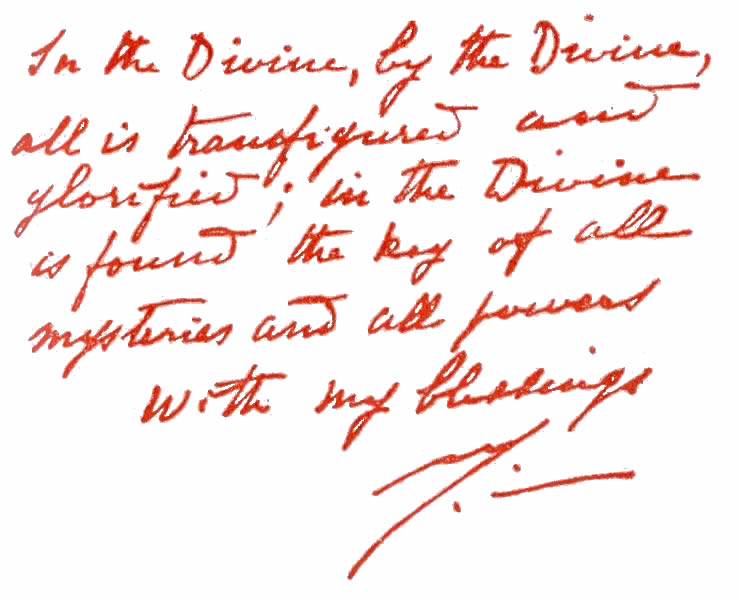 In the Divine, by the Divine,
all is transfigured and
glorified; in the Divine
is found the key of all
mysteries and all powers
With my blessings